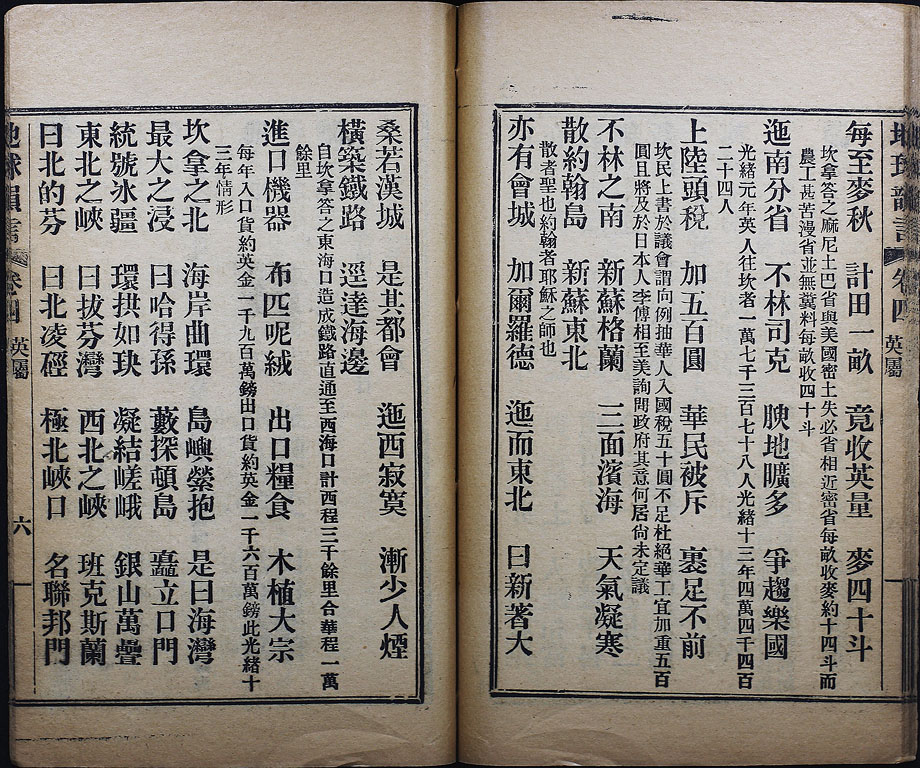 地球韻言 卷四 英屬
每至麥秋 計田一畝 竟收英量 麥四十斗
坎拿答之麻尼土巴省與美國密土失必省相近密省每畝收麥約十四斗而
農工甚苦漫省並無糞料每畝收四十斗
迤南分省 不林司克 腴地曠多 爭趨樂國
光緒元年英人往坎者一萬七千三百七十八人光緒十三年四萬四千四百
二十四人
上陸頭稅 加五百圓 華民被斥 裹足不前
坎民上書於議會謂向例抽華人入國稅五十圓不足杜絕華工宜加重五百
圓且將及於日本人李傅相至美詢問政府其意何居尙未定議
不林之南 新蘇格蘭 三面濱海 天氣凝寒
散約翰島 新蘇東北
散者聖也約翰者耶穌之師也
亦有會城 加爾羅德 迤而東北 曰新著大
桑若漢城 是其都會 迤西寂寞 漸少人煙
橫築鐵路 逕達海邊
自坎拿答之東海口造成鐵路直通至西海口計西程三千餘里合華程一萬
餘里
進口機器 布匹呢絨 出口糧食 木植大宗
每年入口貨約英金一千九百萬鎊出口貨約英金一千六百萬鎊此光緒十
三年情形
坎拿之北 海岸曲環 島嶼縈抱 是曰海灣
最大之浸 曰哈得孫 藪探頓島 矗立口門
統號冰疆 環拱如玦 凝結嵯峨 銀山萬疊
東北之峽 曰拔芬灣 西北之峽 班克斯蘭
曰北的芬 曰北凌硜 極北峽口 名聯邦門
地球韻言 卷四 英屬 六